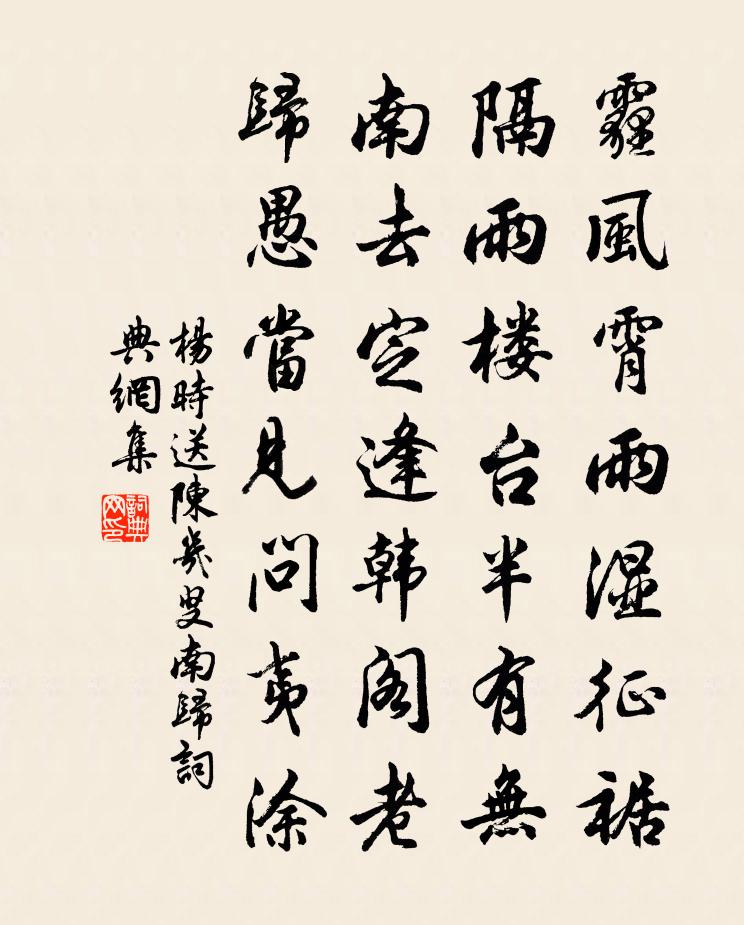 霾風霄雨濕征裾
隔雨楼台半有無
南去定逢韩阁老
歸愚當見問夷涂
楊時送陳幾叟南歸詞
典網集
詞典網印